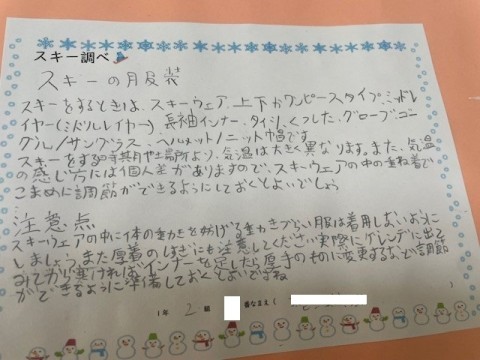 スキー調べ
スキーの服装
スキーをするときは、スキーウェア、上下かワンピースタイプ、ミドルレ
イヤー(ミドルレイヤー)、長袖インナー、タイツ、くつした、グローブ、ゴー
グル/サングラス、ヘルメット/ニット帽です。
スキーをする時期や場所より、気温は大きく異なります。また、気温
の感じ方には個人差がありますので、スキーウェアの中の重ね着で
こまめに調節ができるようにしておくとよいでしょう
注意点
スキーウェアの中に体の動きを妨げる動きづらい服は着用しないように
しましょう。また厚着のしすぎにも注意してください。実際にゲレンデに出て
みてから寒ければインナーを足したら厚手のものに変更するなど調節
ができるように準備しておくとよいですね
1年 2 組 番なまえ( )